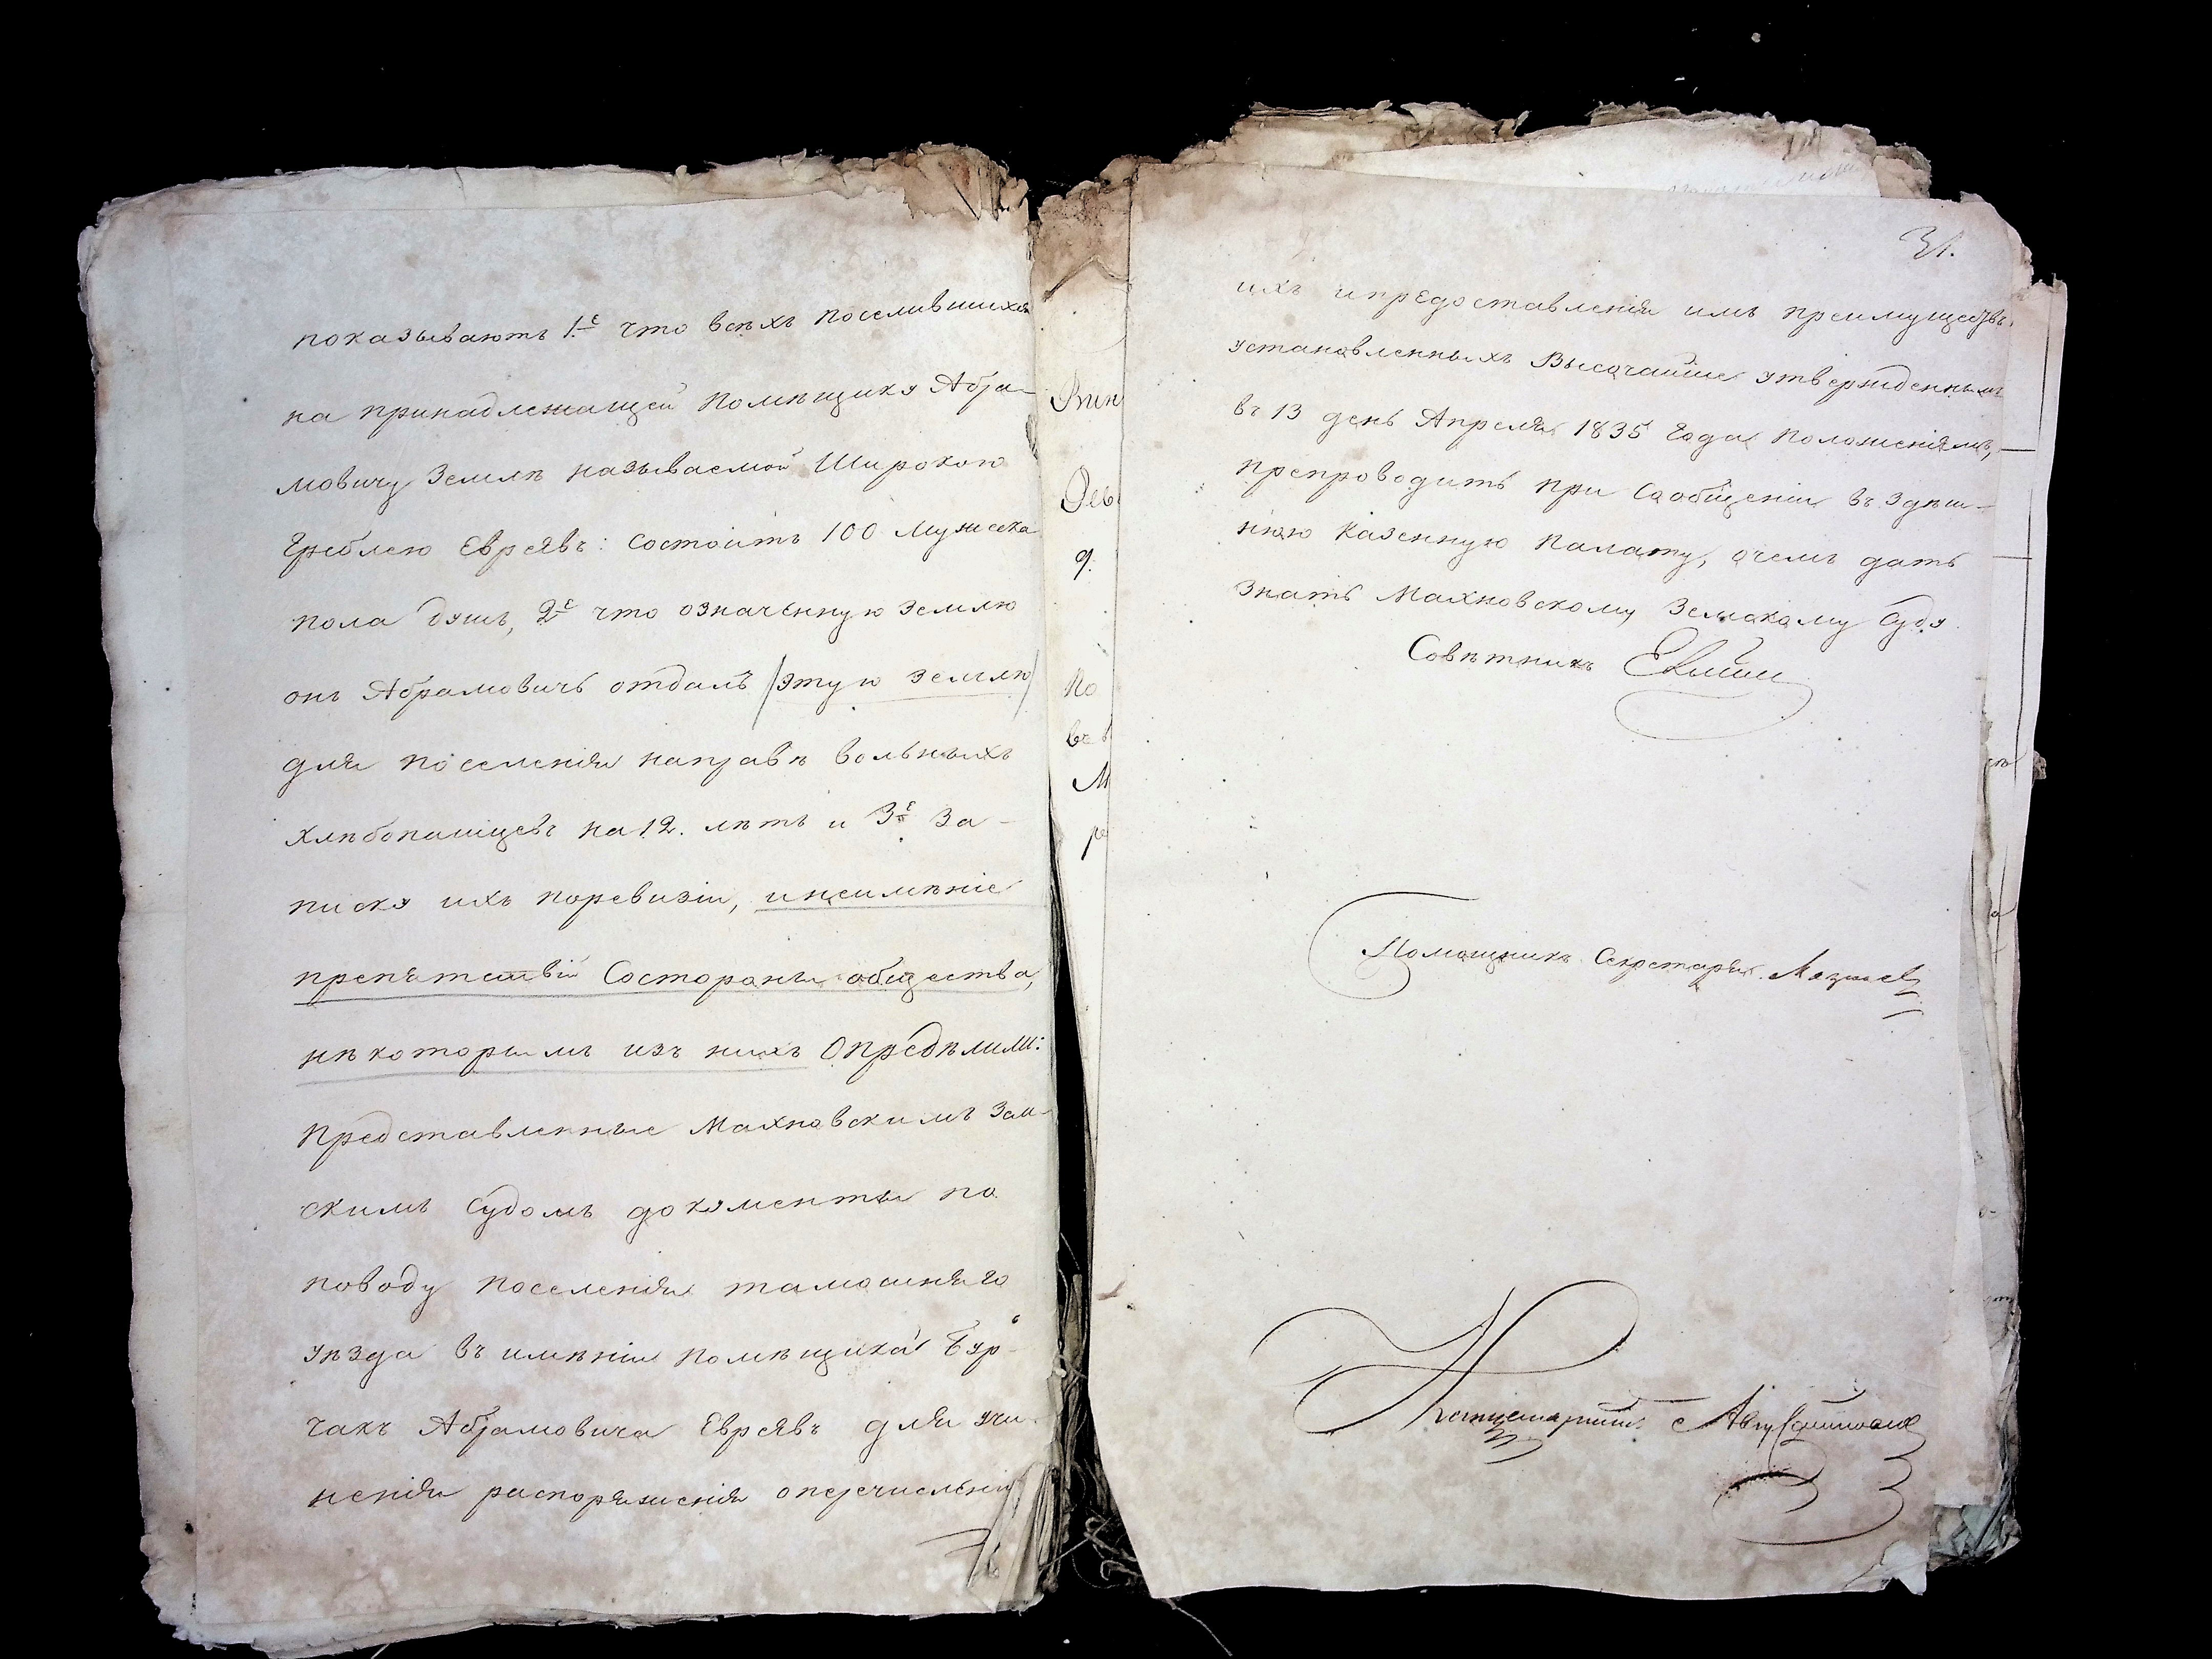 показываютъ 1е что всѣхъ поселившихся
на принадлежащей Помѣщику Абра-
мовичу Землѣ называемой Широкою
Греблею Евреявъ: состоитъ 100 мужеска
пола душъ, 2е что означенную землю
онъ Абрамовичъ отдалъ /этую землю/
для поселенія направѣ вольныхъ
хлѣбопашцевъ на 12. лѣтъ и 3е За-
писку ихъ поревизіи, инеимѣніе
препятствій Состороны общества,
нѣкоторымъ изъ нихъ Опредѣлили:
Представленные Махновскимъ Зем-
скимъ Судомъ документы по
поводу поселенія тамошняго
уѣзда въ имѣніи помѣщика Бур-
чакъ Абрамовича Евреявъ для учи-
ненія распоряженія оперечисленіи
31.
ихъ ипредоставленія имъ преимуществъ,
установленныхъ Высочайше утвержденнымъ
въ 13 день Апреля 1835 Года Положеніямъ,
препроводить при Сообщеніи въ здѣш-
нюю Казенную Палату, очемъ дать
знать Махновскому Земскому Суду.
Совѣтникъ
Помощникъ Секретаря
Канцеляристъ